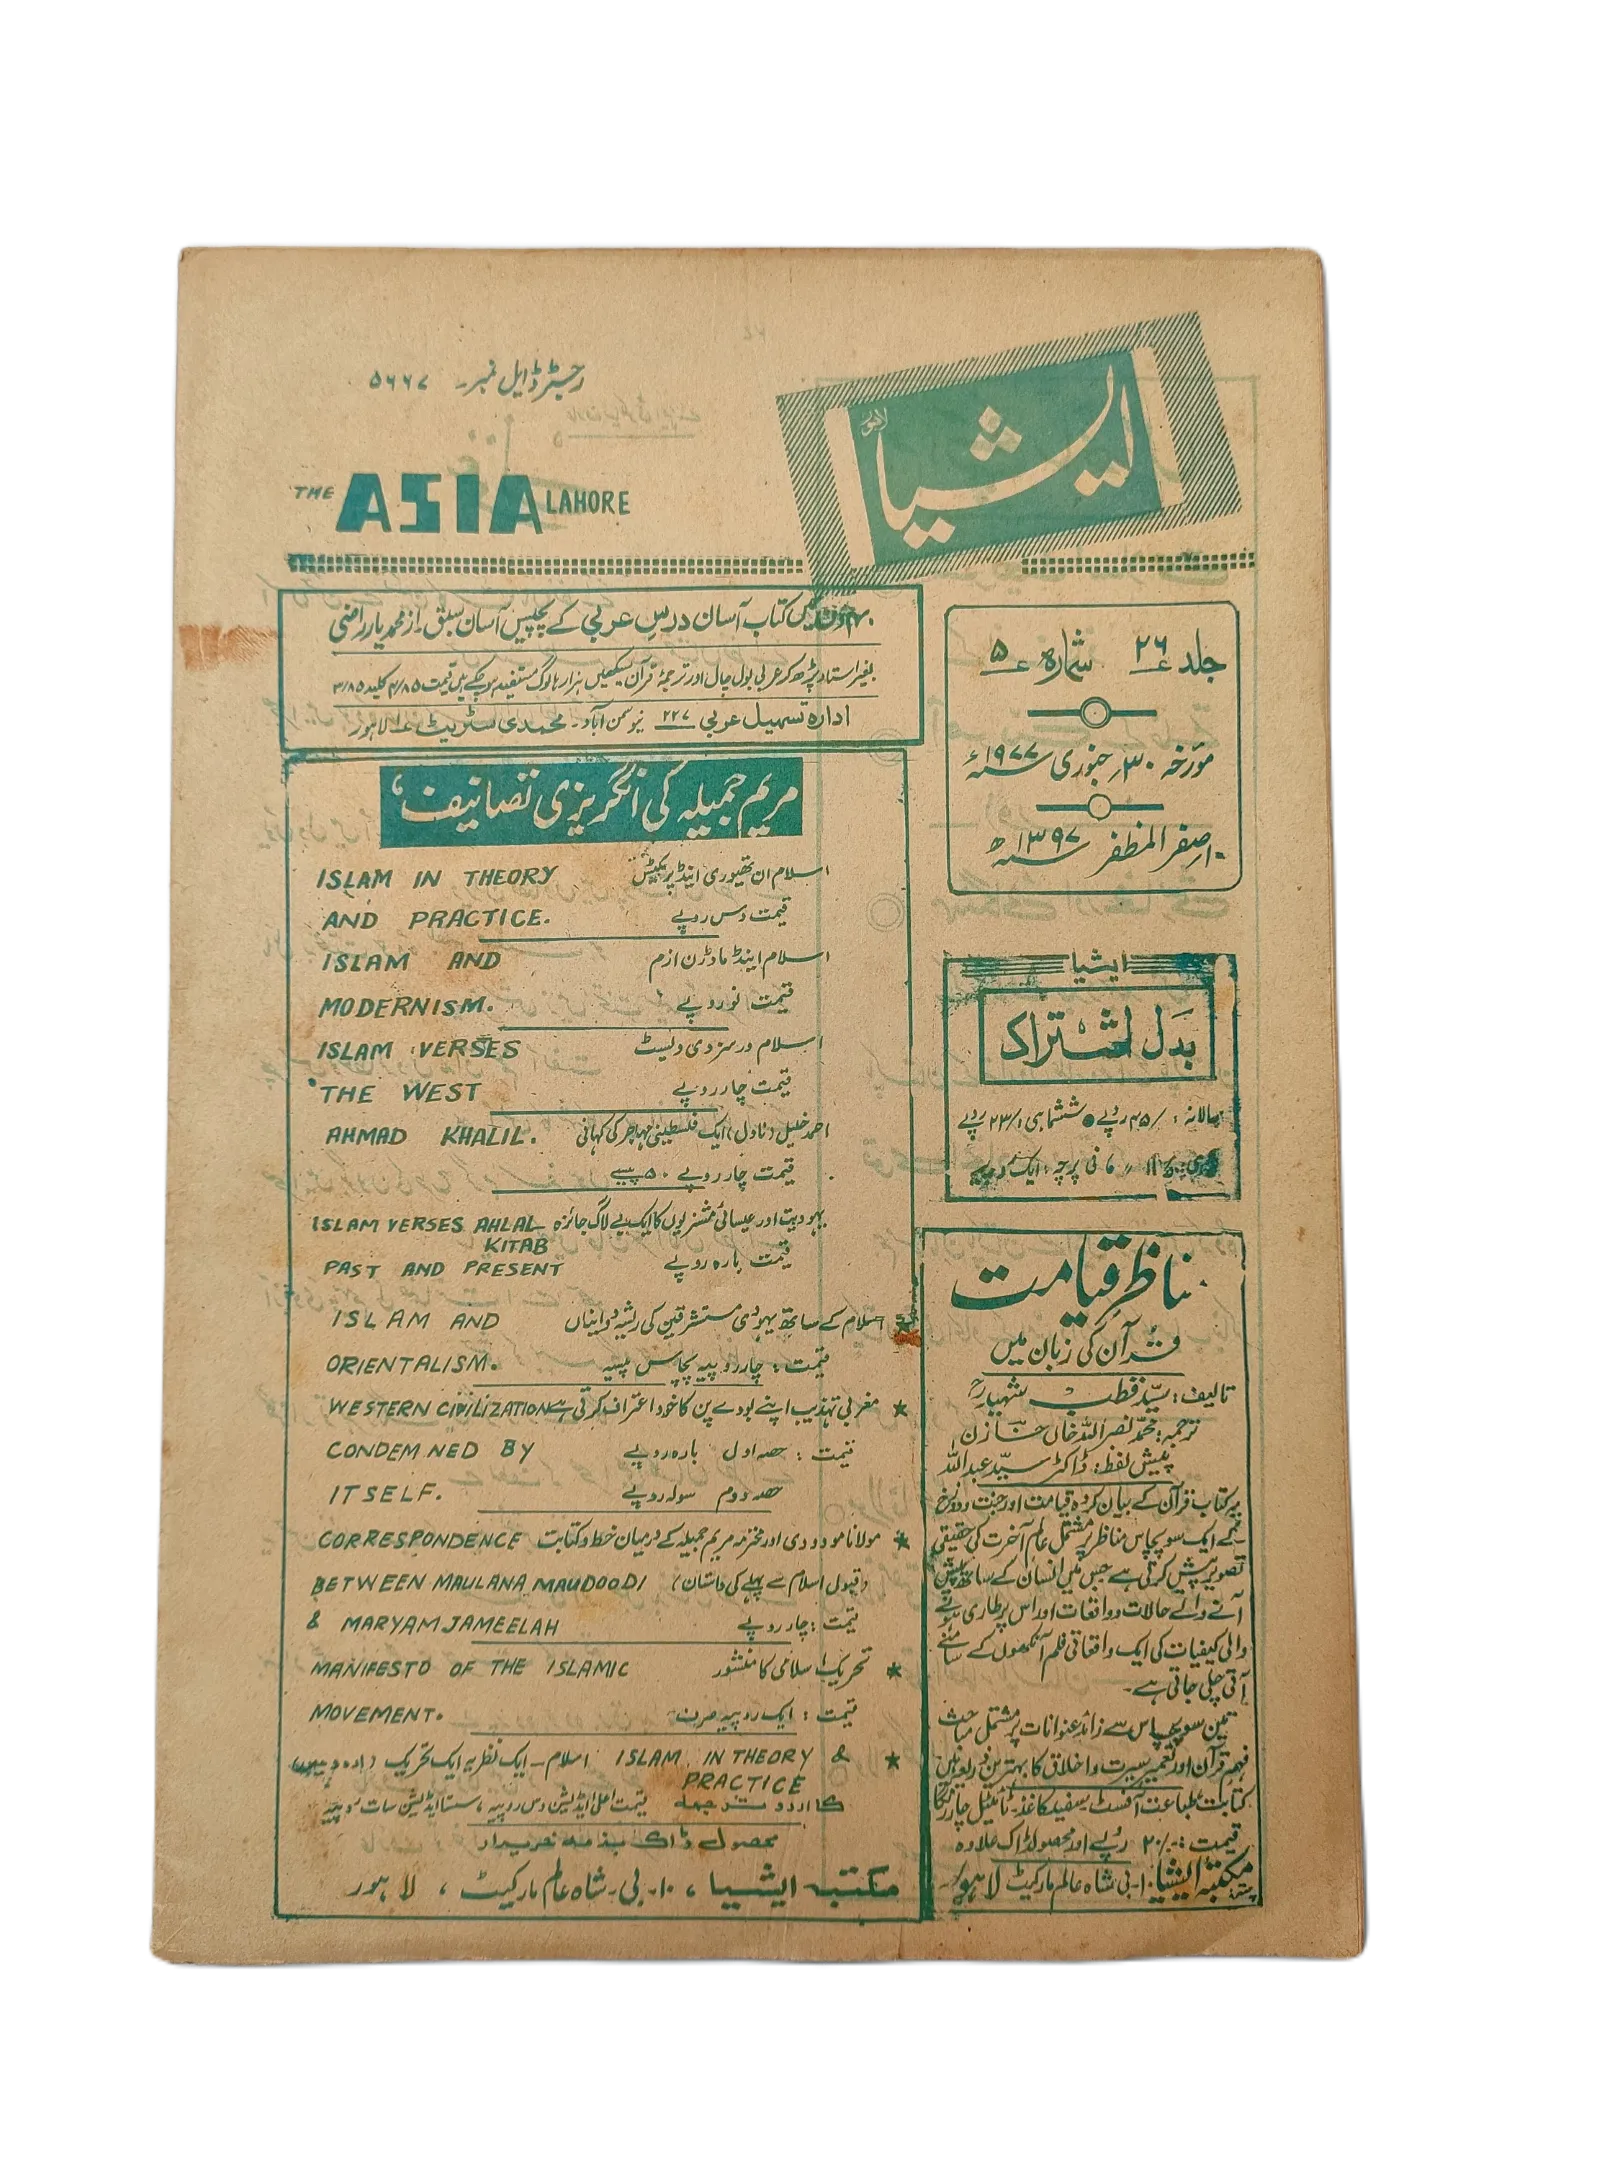 رجسٹرڈ ایل نمبر۔ ۵۶۶۷
ایشیا
لاہور
THE ASIA LAHORE
کتاب آسان درسِ عربی کے پچیس آسان سبق۔ از محمد یار راضی
بغیر استاد پڑھ کر عربی بول چال اور ترجمۂ قرآن سیکھیں ہزارہا لوگ مستفید ہو چکے ہیں قیمت ۴/۸۵ کلید ۳/۸۵
ادارہ تسہیل عربی ۲۲۷ نیو سمن آباد۔ محمدی سٹریٹ لاہور
جلد ۲۶ شمارہ ۵
مؤرخہ ۳۰؍ جنوری ۱۹۷۷ء
۱۰؍ صفر المظفر ۱۳۹۷ھ
ایشیا
بدل اشتراک
سالانہ: /۴۵ روپے ● ششماہی: /۲۳ روپے
فی پرچہ: ایک روپیہ
مریم جمیلہ کی انگریزی تصانیف
ISLAM IN THEORY اسلام ان تھیوری اینڈ پریکٹس
AND PRACTICE. قیمت دس روپے
ISLAM AND اسلام اینڈ ماڈرن ازم
MODERNISM. قیمت نو روپے
ISLAM VERSES اسلام ورسز دی ویسٹ
THE WEST قیمت چار روپے
AHMAD KHALIL. احمد خلیل (ناول) ایک فلسطینی مہاجر کی کہانی
قیمت چار روپے ۵۰ پیسے
ISLAM VERSES AHLAL یہودیت اور عیسائی مشنریوں کا ایک بے لاگ جائزہ
KITAB
PAST AND PRESENT قیمت بارہ روپے
ISLAM AND اسلام کے ساتھ یہودی مستشرقین کی ریشہ دوانیاں
ORIENTALISM. قیمت: چار روپیہ پچاس پیسہ
WESTERN CIVILIZATION مغربی تہذیب اپنے بودے پن کا خود اعتراف کرتی ہے
CONDEMNED BY قیمت: حصہ اول بارہ روپے
ITSELF. حصہ دوم سولہ روپے
CORRESPONDENCE مولانا مودودی اور محترمہ مریم جمیلہ کے درمیان خط و کتابت
BETWEEN MAULANA MAUDOODI (قبول اسلام سے پہلے کی داستان)
& MARYAM JAMEELAH قیمت: چار روپے
MANIFESTO OF THE ISLAMIC تحریک اسلامی کا منشور
MOVEMENT. قیمت: ایک روپیہ صرف
ISLAM IN THEORY & اسلام۔ ایک نظریہ ایک تحریک
PRACTICE
کا اردو ترجمہ قیمت اعلیٰ ایڈیشن دس روپیہ، سستا ایڈیشن سات روپیہ
محصول ڈاک بذمہ خریدار
مکتبہ ایشیا، ۱۰۔ بی۔ شاہ عالم مارکیٹ، لاہور
مناظرِ قیامت
قرآن کی زبان میں
تالیف: سید قطب شہیدؒ
ترجمہ: محمد نصر اللہ خاں خازن
پیش لفظ: ڈاکٹر سید عبداللہ
یہ کتاب قرآن کے بیان کردہ قیامت اور جنت و دوزخ
کے ایک سو پچاس مناظر پر مشتمل عالمِ آخرت کی حقیقی
تصویر پیش کرتی ہے جس میں انسان کے ساتھ پیش
آنے والے حالات و واقعات اور اس پر طاری ہونے
والی کیفیات کی ایک واقعاتی فلم آنکھوں کے سامنے
آتی چلی جاتی ہے۔
تین سو پچاس سے زائد عنوانات پر مشتمل مباحث
فہمِ قرآن اور تعمیرِ سیرت و اخلاق کا بہترین ذریعہ ہیں
کتابت طباعت آفسٹ۔ سفید کاغذ۔ ٹائٹل چار رنگا
قیمت: ۲۰/- روپے اور محصول ڈاک علاوہ
پتہ: مکتبہ ایشیا ۱۰۔ بی شاہ عالم مارکیٹ لاہور